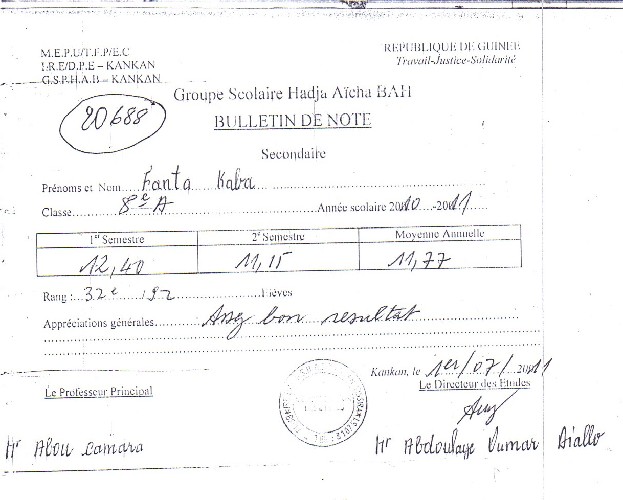 M.E.P.U/T.F.P/E.C
REPUBLIQUE DE GUINEE
I.R.E/D.P.E – KANKAN
Travail-Justice-Solidarité
G.S.P.H.A.B – KANKAN
Groupe Scolaire Hadja Aïcha BAH
20688
BULLETIN DE NOTE
Secondaire
Prénoms et Nom....Fanta Kaba
Classe........8e A........Année scolaire 2010.-2011
1er Semestre 2e Semestre Moyenne Annuelle
12,40 11,15 11,77
Rang : 32e /92 Elèves
Appréciations générales........Assez bon resultat
Kankan, le 1er/07/2011
Le Professeur Principal
Le Directeur des Etudes
Mr Abou Camara
Mr Abdoulaye Oumar Diallo